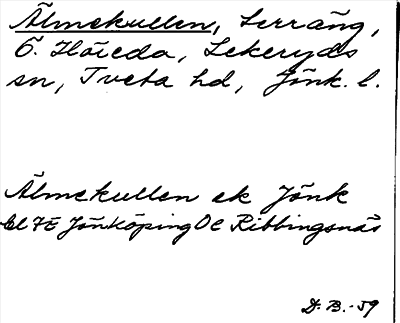 Älmekullen, Serräng,
Ö. Höreda, Lekeryds
sn, Tveta hd, Jönk. l.
Älmekullen ek Jönk
bl 7E Jönköping OC Ribbingsnäs
D. B. -59